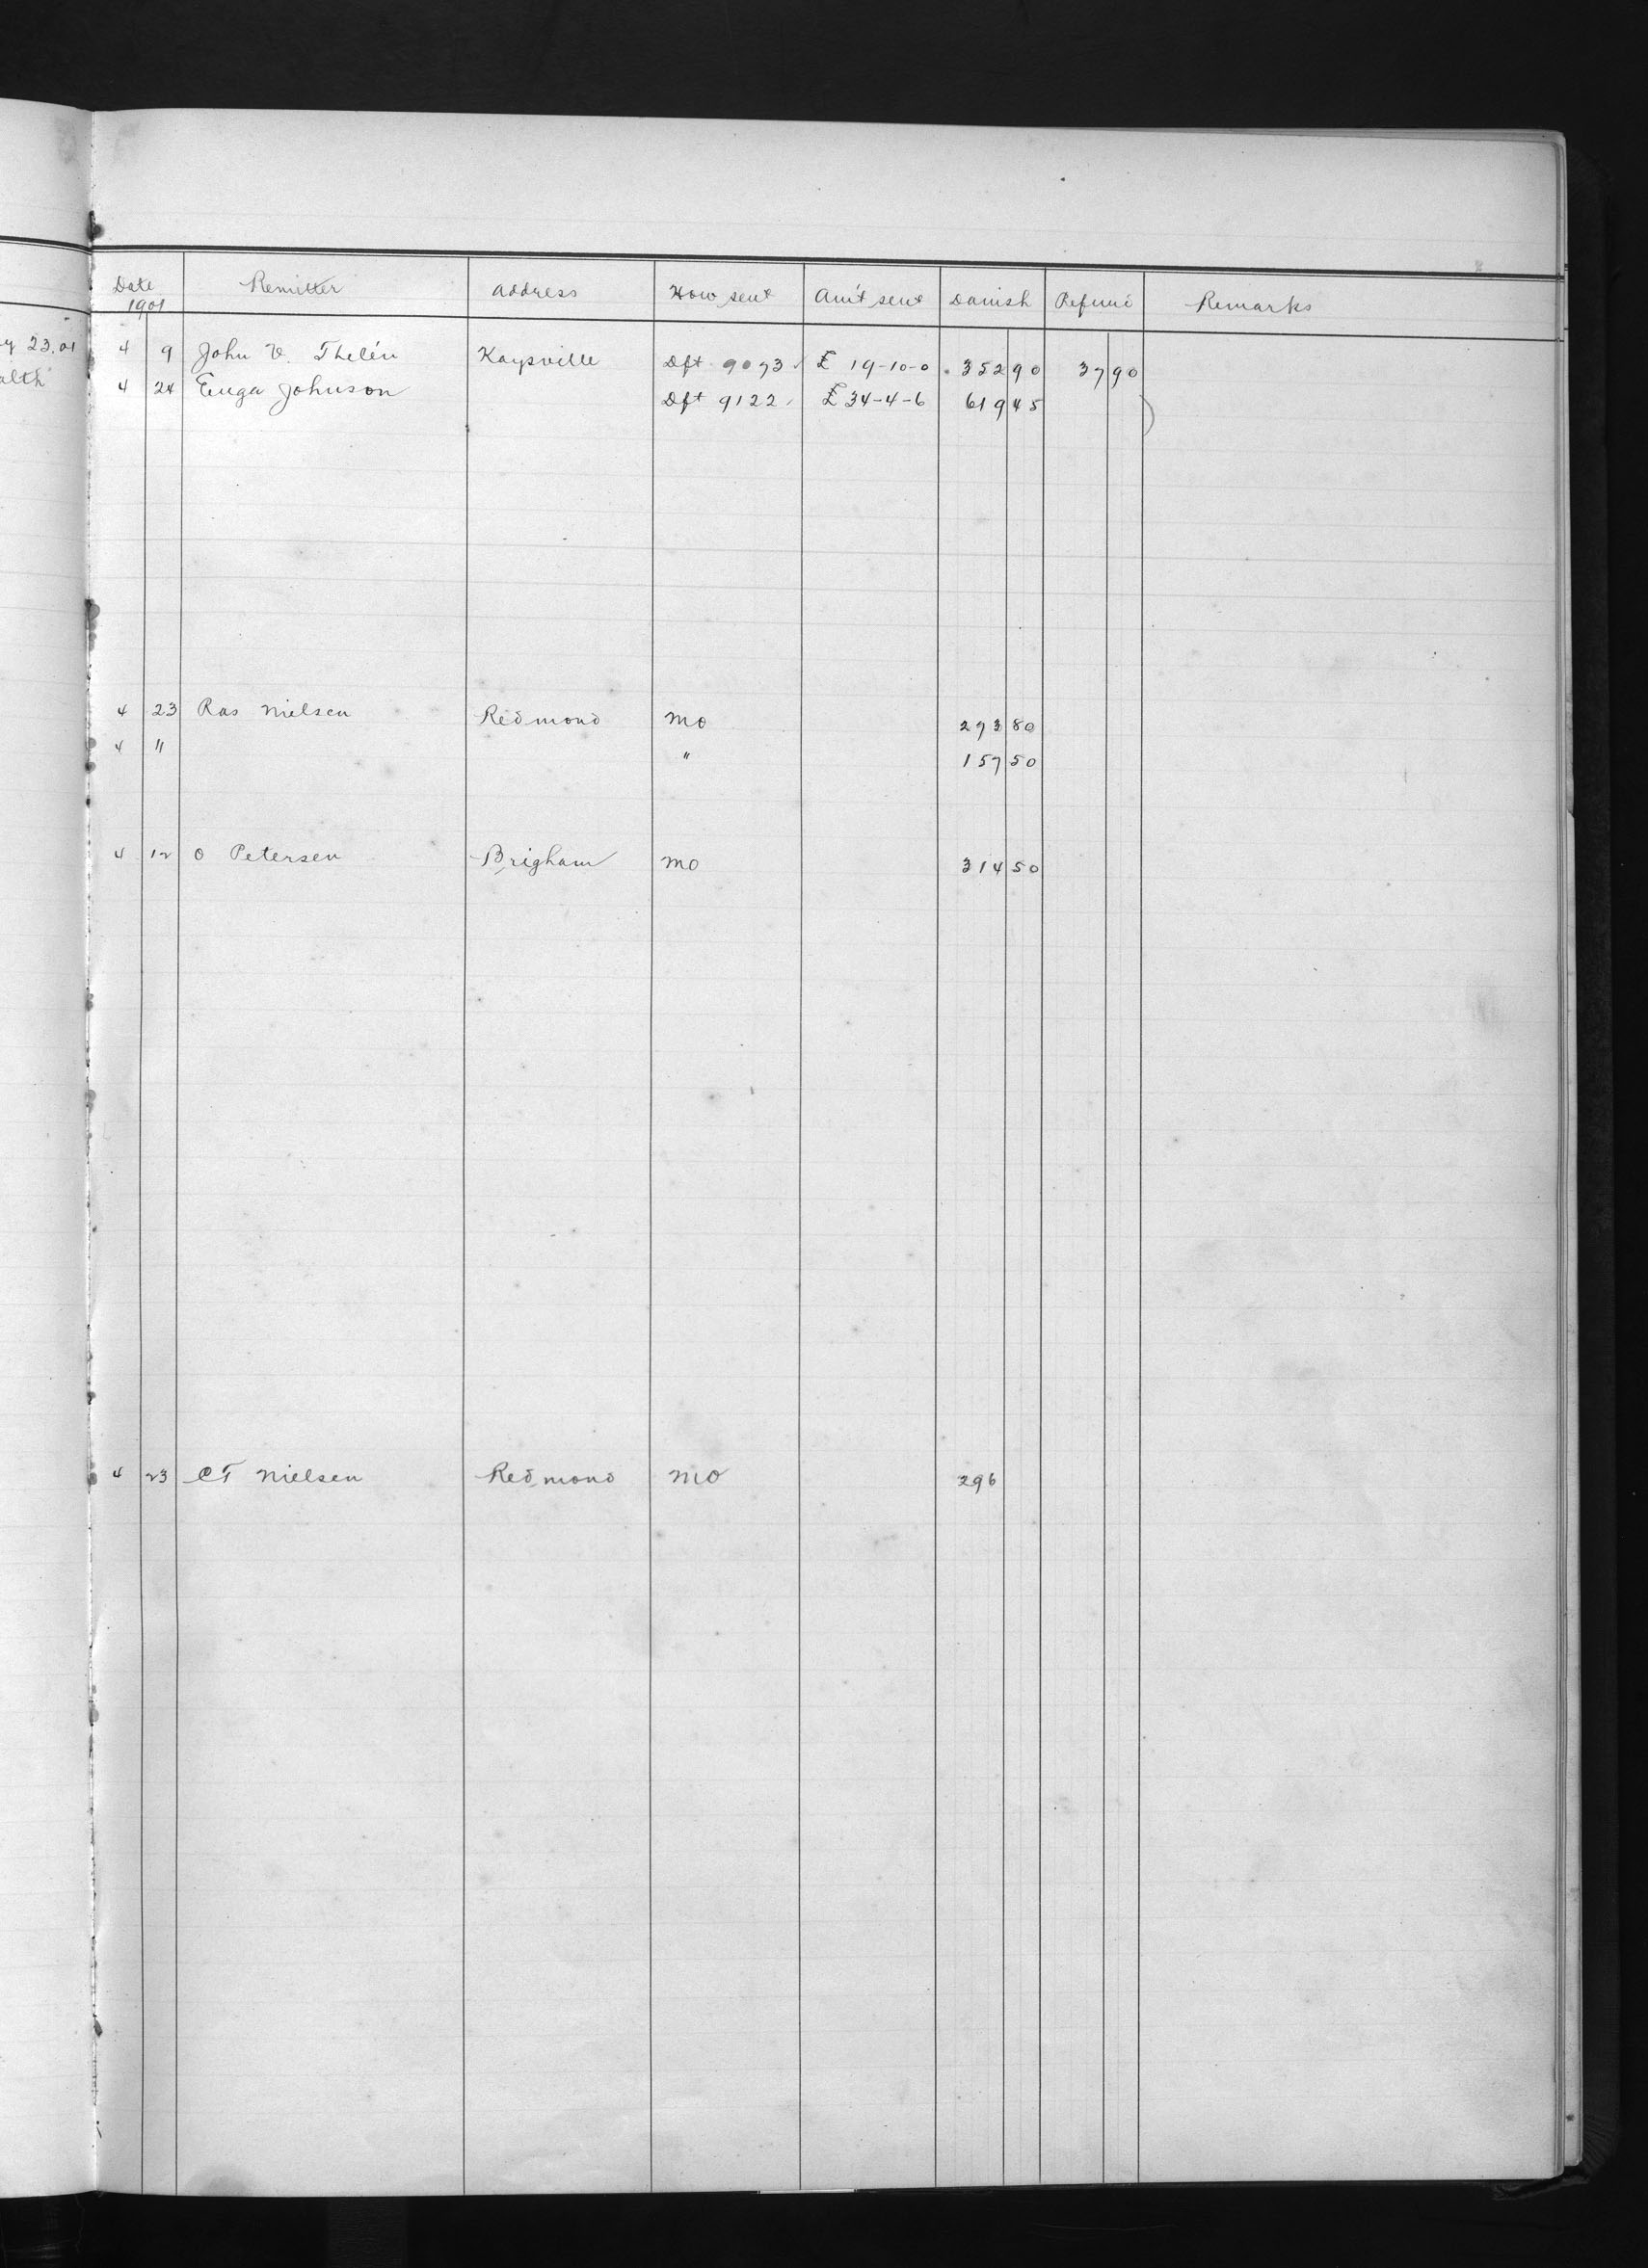 Date 1901 Remitter Address How sent Am't sent Danish Refund Remarks
4 9 John V. Thelén Kaysville Dft 9073 £ 19-10-0 352 90 37 90
4 24 Enga Johnson Dft 9122 £ 34-4-6 619 45
4 23 Ras Nielsen Redmond MO 293 80
4 " " 157 50
4 12 O Petersen Brigham MO 314 50
4 23 CT Nielsen Redmond MO 296
23.01